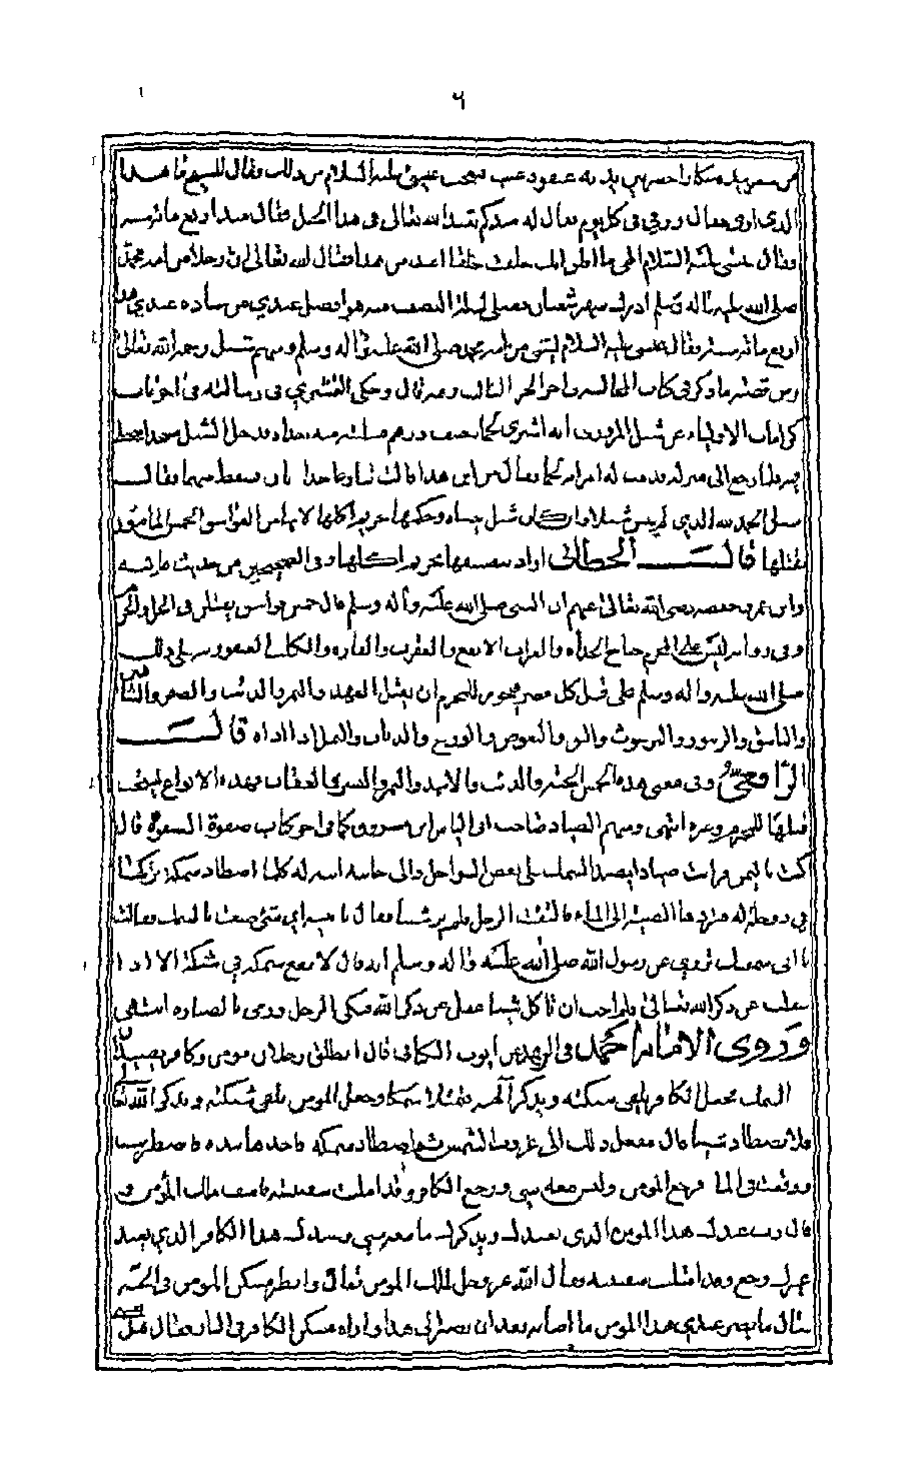 ٦
بين يديه عنقود عنب فتعجب عيسى عليه السلام من ذلك فقال للشيخ ما هذا
الذي ارى فقال رزقي في كل يوم فقال له منذ كم تعبد الله تعالى في هذا الحجر فقال منذ اربع مائة سنة
فقال عيسى عليه السلام الهي ما اظن انك خلقت خلقا اعبد من هذا فقال الله تعالى ان رجلا من امة محمد
صلى الله عليه واله وسلم ادرك شهر شعبان فصلى ليلة النصف منه هو افضل عندي من عبادة عبدي هذا
اربع مائة سنة فقال عيسى عليه السلام ليتني من امة محمد صلى الله عليه واله وسلم
ومن ما ذكر في كتاب قال وحكى القشيري في رسالته في اخر باب
كرامات الاولياء عن شبل المروزي انه اشترى لحما بنصف درهم فاستلبته منه حداة فدخل شبل مسجدا يصلي
فلما رجع الى منزله قدمت له امراته لحما فقال من اين هذا قالت تنازعت حداتان فسقط منهما فقال
شبل الحمد لله الذي لم ينس شبلا وان كان شبل ينساه وحكمها تحريم اكلها لانها من الفواسق الخمس المامور
بقتلها قال الخطابي اراد بفسقها تحريم اكلها وفي الصحيحين من حديث عائشة
وابن عمر وحفصة رضي الله تعالى عنهم ان النبي صلى الله عليه واله وسلم قال خمس فواسق يقتلن في الحل والحرم
وفي رواية ليس على المحرم جناح الحداة والغراب الابقع والعقرب والفارة والكلب العقور
صلى الله عليه واله وسلم على قتل كل مضر فيجوز للمحرم ان يقتل الفهد والنمر والذئب والصقر
والباشق والزنبور والبرغوث والبق والبعوض والوزغ والذباب والنمل اذا اذاه قال
الرافعي وفي معنى هذه الخمس الحية والذئب والاسد والنمر والنسر والعقاب فهذه الانواع يستحب
قتلها للمحرم وغيره انتهى الصياد صاحب ابو العباس ابن مسروق كما في اخر كتاب صفوة الصفوة قال
كنت باليمن فرايت صيادا يصيد السمك على بعض السواحل والى جانبه ابنة له كلما اصطاد سمكة تركها
في دوخلة له فترد هي الصبية الى الماء فالتفت الرجل فلم ير شيئا فقال يا بنية اي شيء صنعت بالسمك فقالت
يا ابي سمعتك تروي عن رسول الله صلى الله عليه واله وسلم انه قال لا تقع سمكة في شبكة الا اذا
غفلت عن ذكر الله تعالى فلم احب ان ناكل شيئا غفل عن ذكر الله فبكى الرجل ورمى بالصنارة انتهى
وروى الامام احمد في الزهد عن ايوب الكافي قال انطلق رجلان مومن وكافر يصيدان
السمك فجعل الكافر يلقي شبكته ويذكر الهته فتمتلئ سمكا وجعل المومن يلقي شبكته ويذكر الله تعالى
فلا تصطاد شيئا قال ففعل ذلك الى غروب الشمس ثم اصطاد سمكة فاخذها بيده فاضطربت
فوقعت في الماء فرجع المومن وليس معه شيء ورجع الكافر وقد امتلات سفينته فاسف ملك المومن
قال رب عبدك هذا المومن الذي يعبدك ويذكرك ما معه شيء وعبدك هذا الكافر الذي يعبد
غيرك رجع وقد امتلات سفينته فقال الله عز وجل لملك المومن تعال فاراه مسكن المومن في الجنة
فقال ما يضر عبدي هذا المومن ما اصابه بعد ان يصير الى هذا واراه مسكن الكافر في النار فقال هل